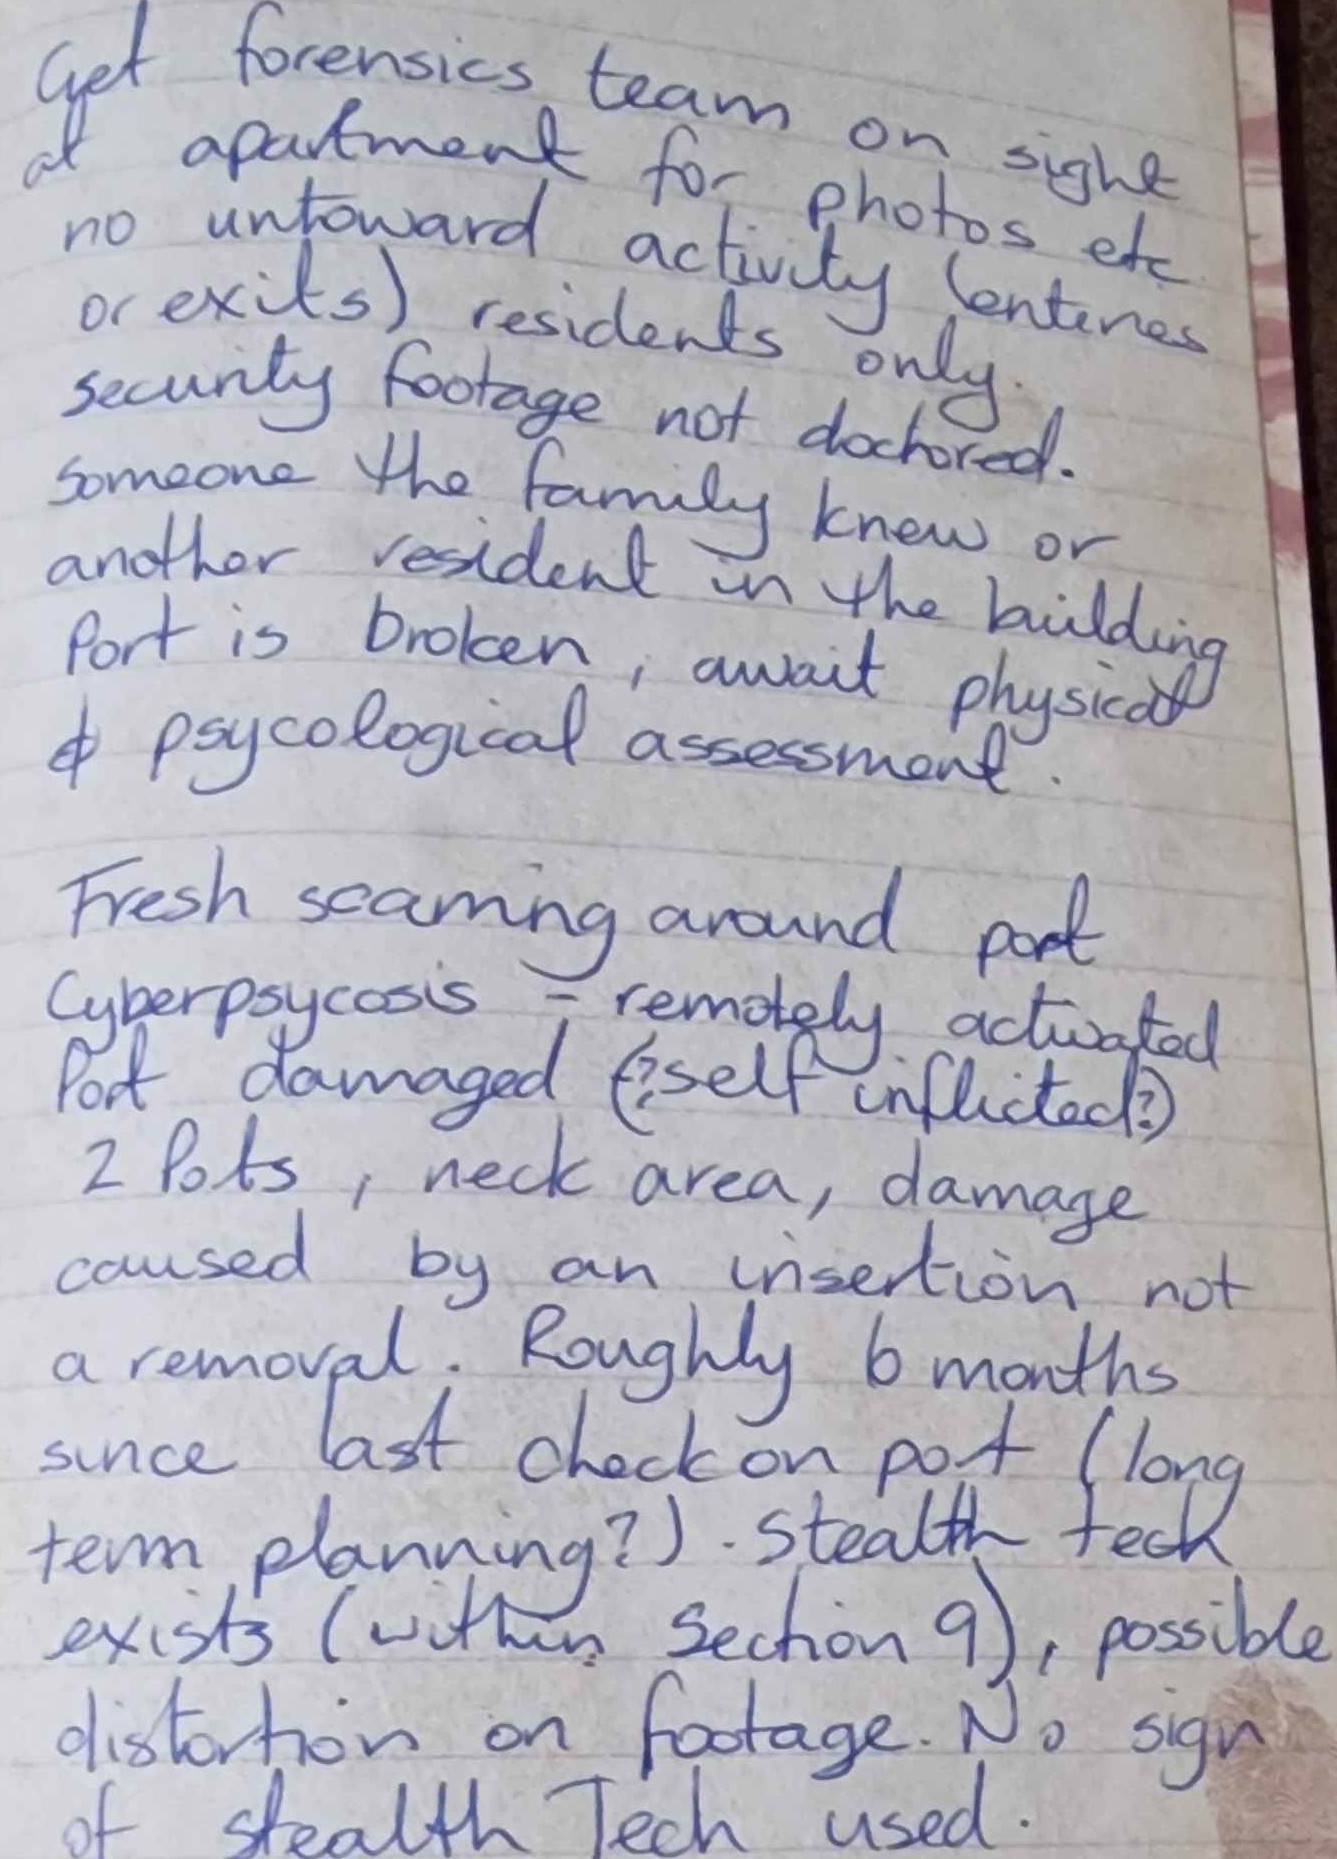 Get forensics team on sight
at apartment for photos etc
no untoward activity (enteries
or exits) residents only.
security footage not doctored.
Someone the family knew or
another resident in the building
Port is broken, await physical
& psycological assessment.
Fresh scarring around port
Cyberpsycosis - remotely activated
Port damaged (?self inflicted?)
2 Ports, neck area, damage
caused by an insertion not
a removal. Roughly 6 months
since last check on port (long
term planning?). Stealth tech
exists (within Section 9), possible
distortion on footage. No sign
of stealth Tech used.